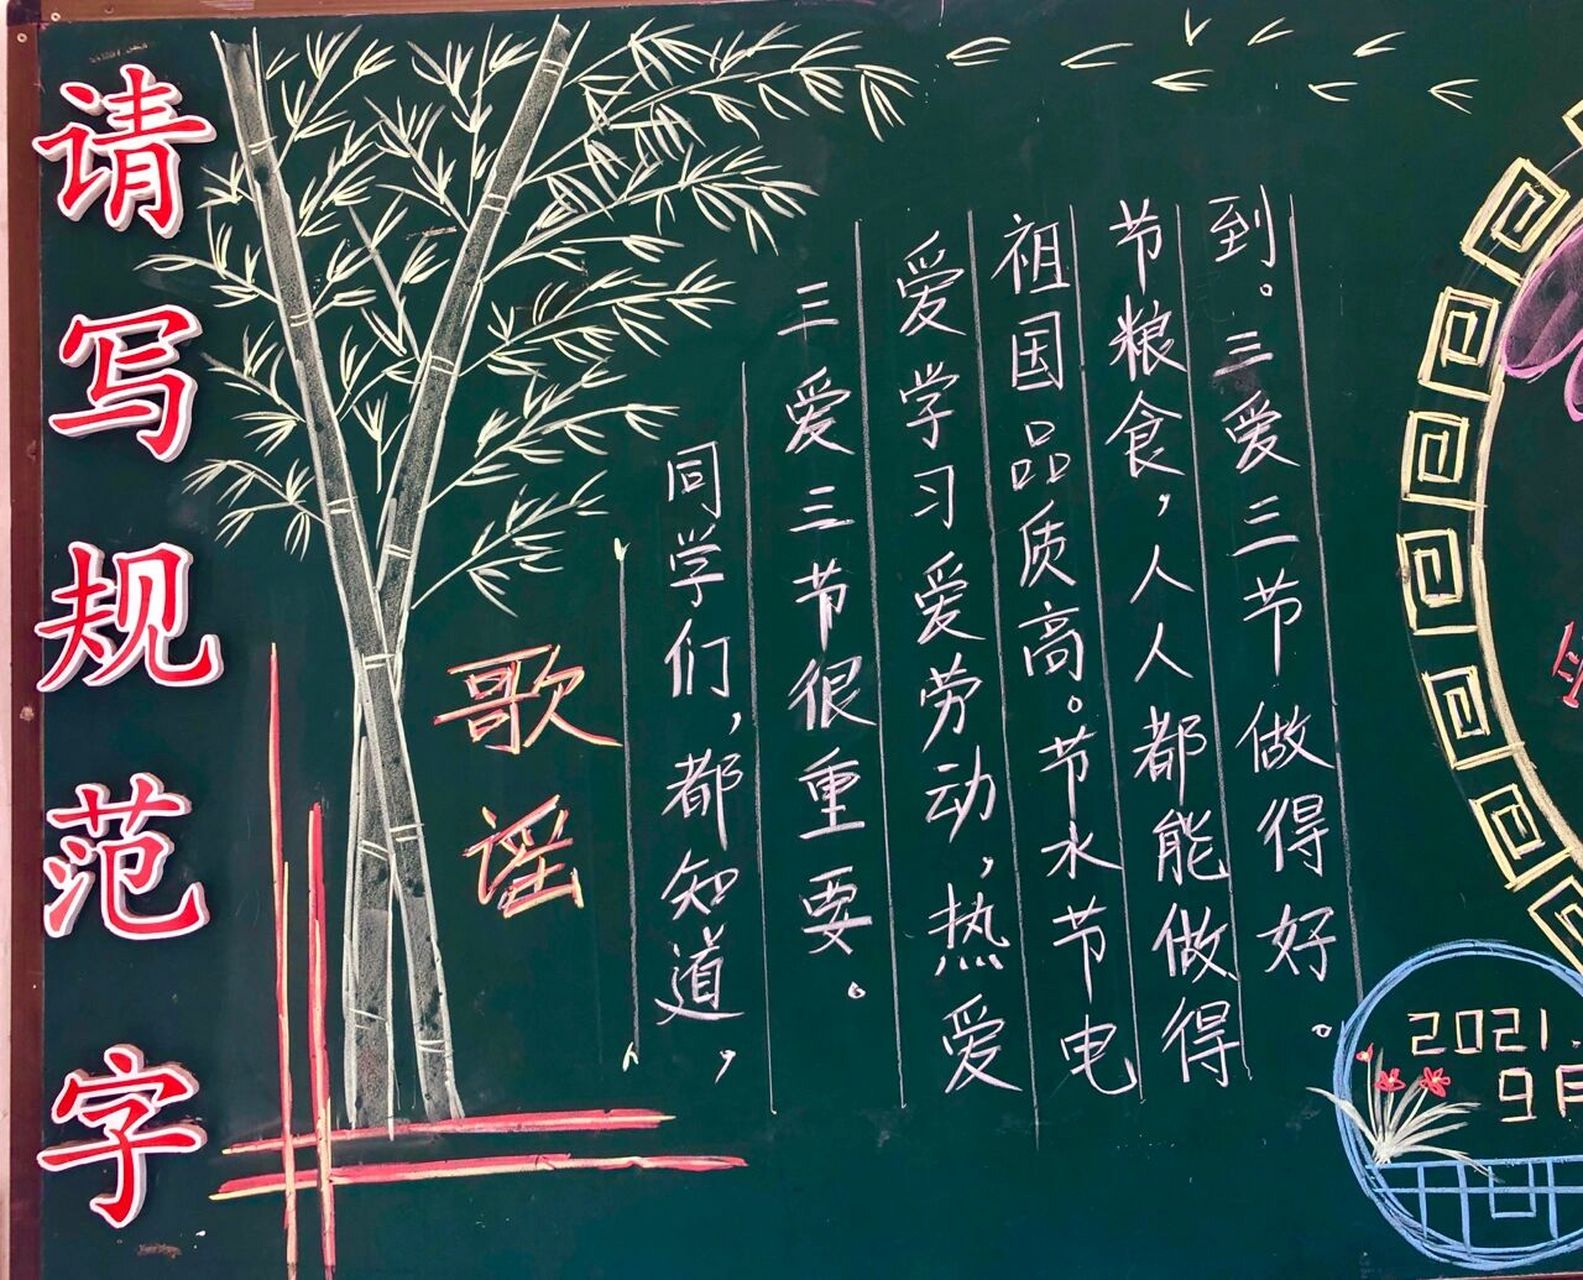 请写规范字
歌谣
同学们，都知道，
三爱三节很重要。
爱学习爱劳动，热爱
祖国品质高。节水节电
节粮食，人人都能做得
到。三爱三节做得好。
2021.
9月